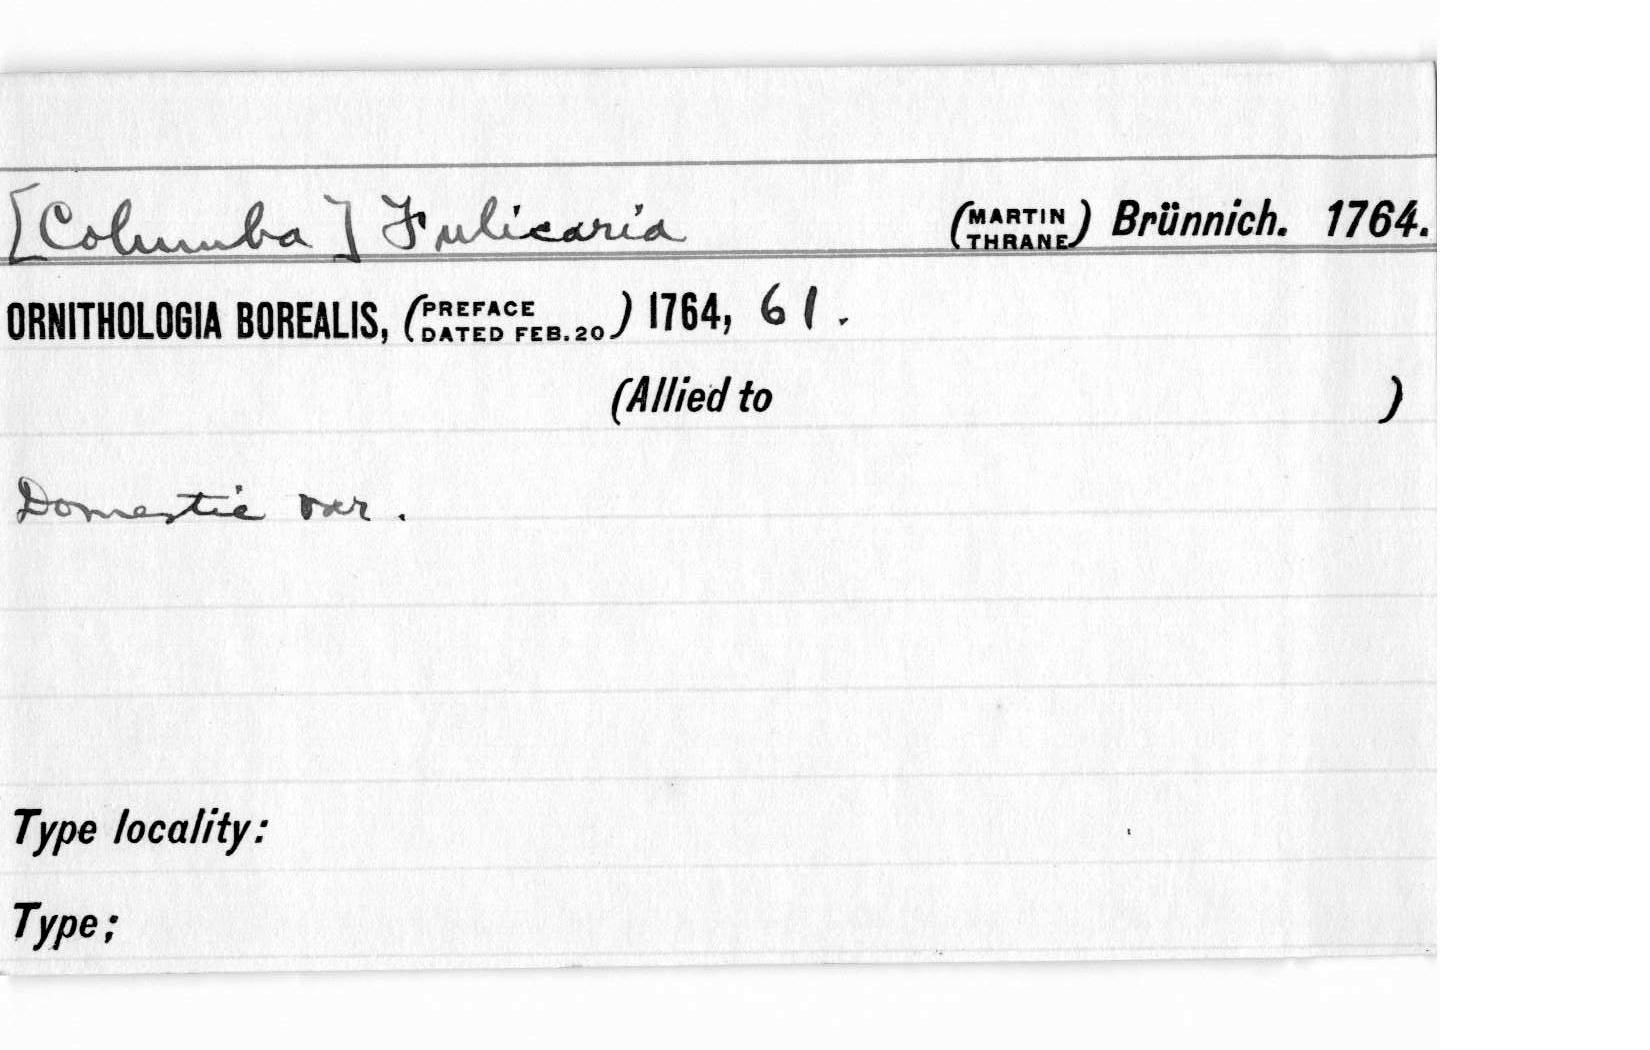 [Columba] Fulicaria (MARTIN THRANE) Brünnich. 1764.
ORNITHOLOGIA BOREALIS, (PREFACE DATED FEB. 20) 1764, 61.
(Allied to )
Domestic var.
Type locality:
Type: